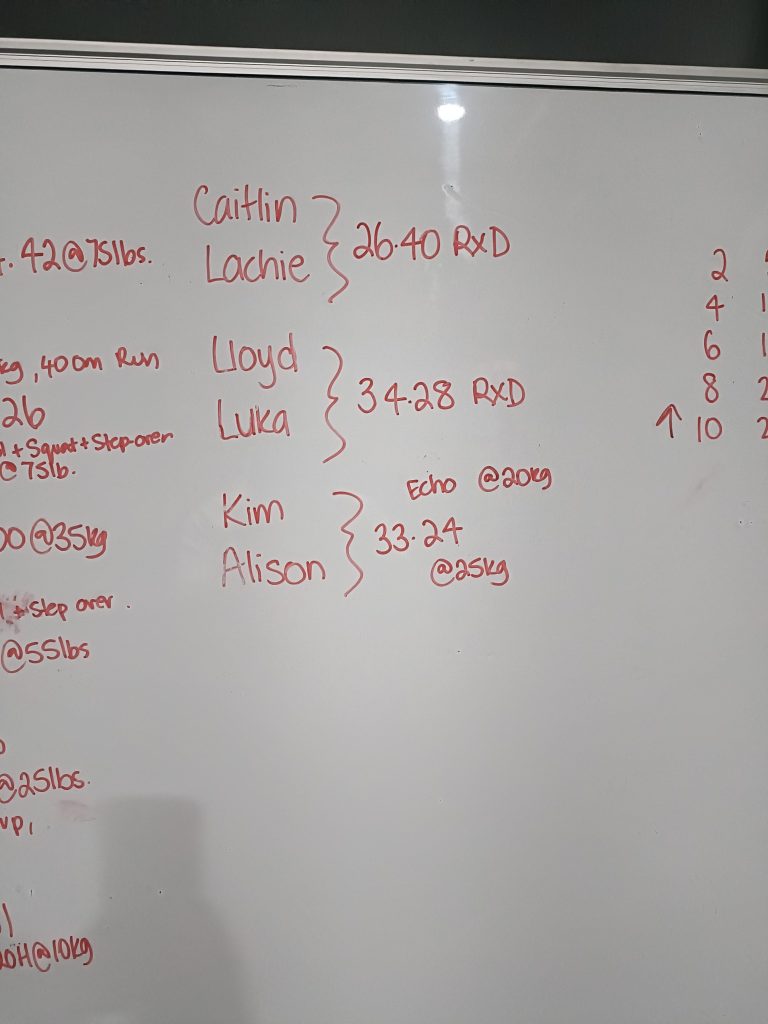 42@75lbs.
kg, 400m Run
26
+ Squat + Step-over
@75lb.
@35kg
+ Step over.
@55lbs
@25lbs.
@10kg
Caitlin
Lachie
26.40 RXD
Lloyd
Luka
34.28 RXD
Echo @20kg
Kim
Alison
33.24
@25kg
2
4
6
8
↑ 10